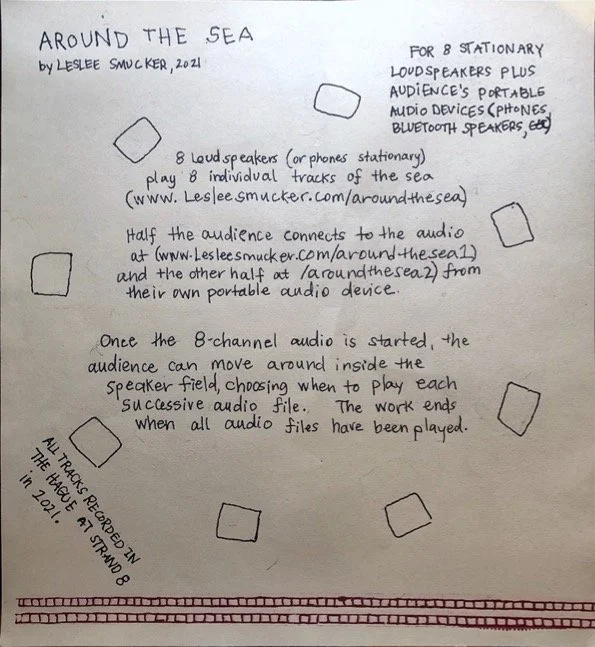 AROUND THE SEA
by LESLEE SMUCKER, 2021
FOR 8 STATIONARY
LOUDSPEAKERS PLUS
AUDIENCE'S PORTABLE
AUDIO DEVICES (PHONES,
BLUETOOTH SPEAKERS, etc)
8 Loudspeakers (or phones stationary)
play 8 individual tracks of the sea
(www.Lesleesmucker.com/aroundthesea)
Half the audience connects to the audio
at (www.Lesleesmucker.com/aroundthesea1)
and the other half at /aroundthesea2) from
their own portable audio device.
Once the 8-channel audio is started, the
audience can move around inside the
speaker field, choosing when to play each
successive audio file. The work ends
when all audio files have been played.
ALL TRACKS RECORDED IN
THE HAGUE AT STRAND 8
in 2021.